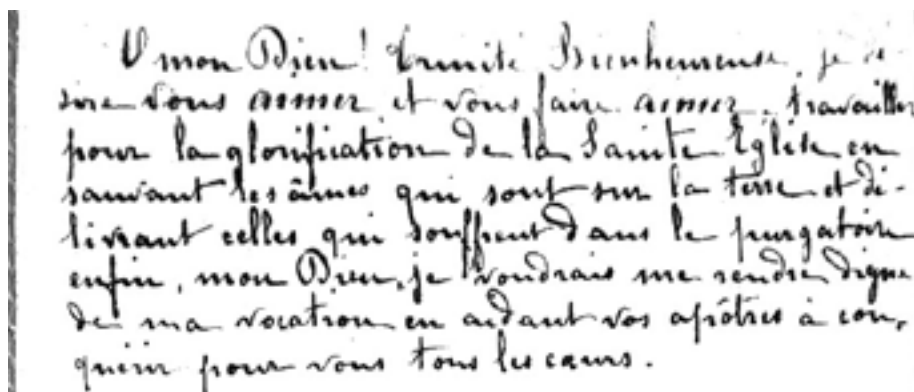 O mon Dieu! Trinité Bienheureuse, je dé
sire vous aimer et vous faire aimer, travailler
pour la glorification de la Sainte Eglise en
sauvant les âmes qui sont sur la terre et dé-
livrant celles qui souffrent dans le purgatoire
enfin, mon Dieu, je voudrais me rendre digne
de ma vocation en aidant vos apôtres à con,
quérir pour vous tous les cœurs.